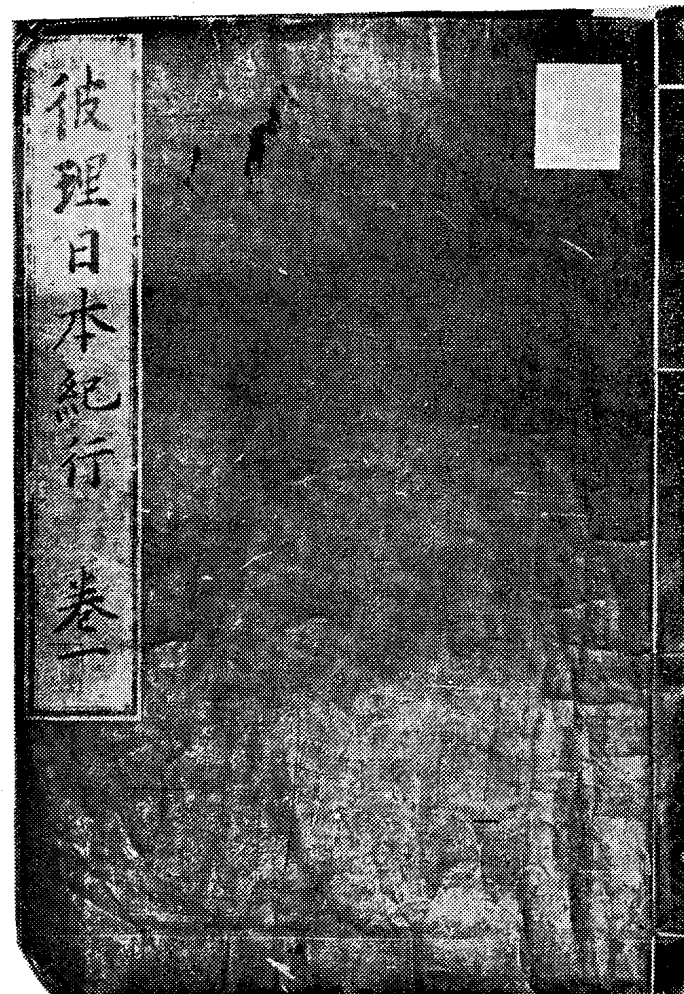 彼理日本紀行 巻一